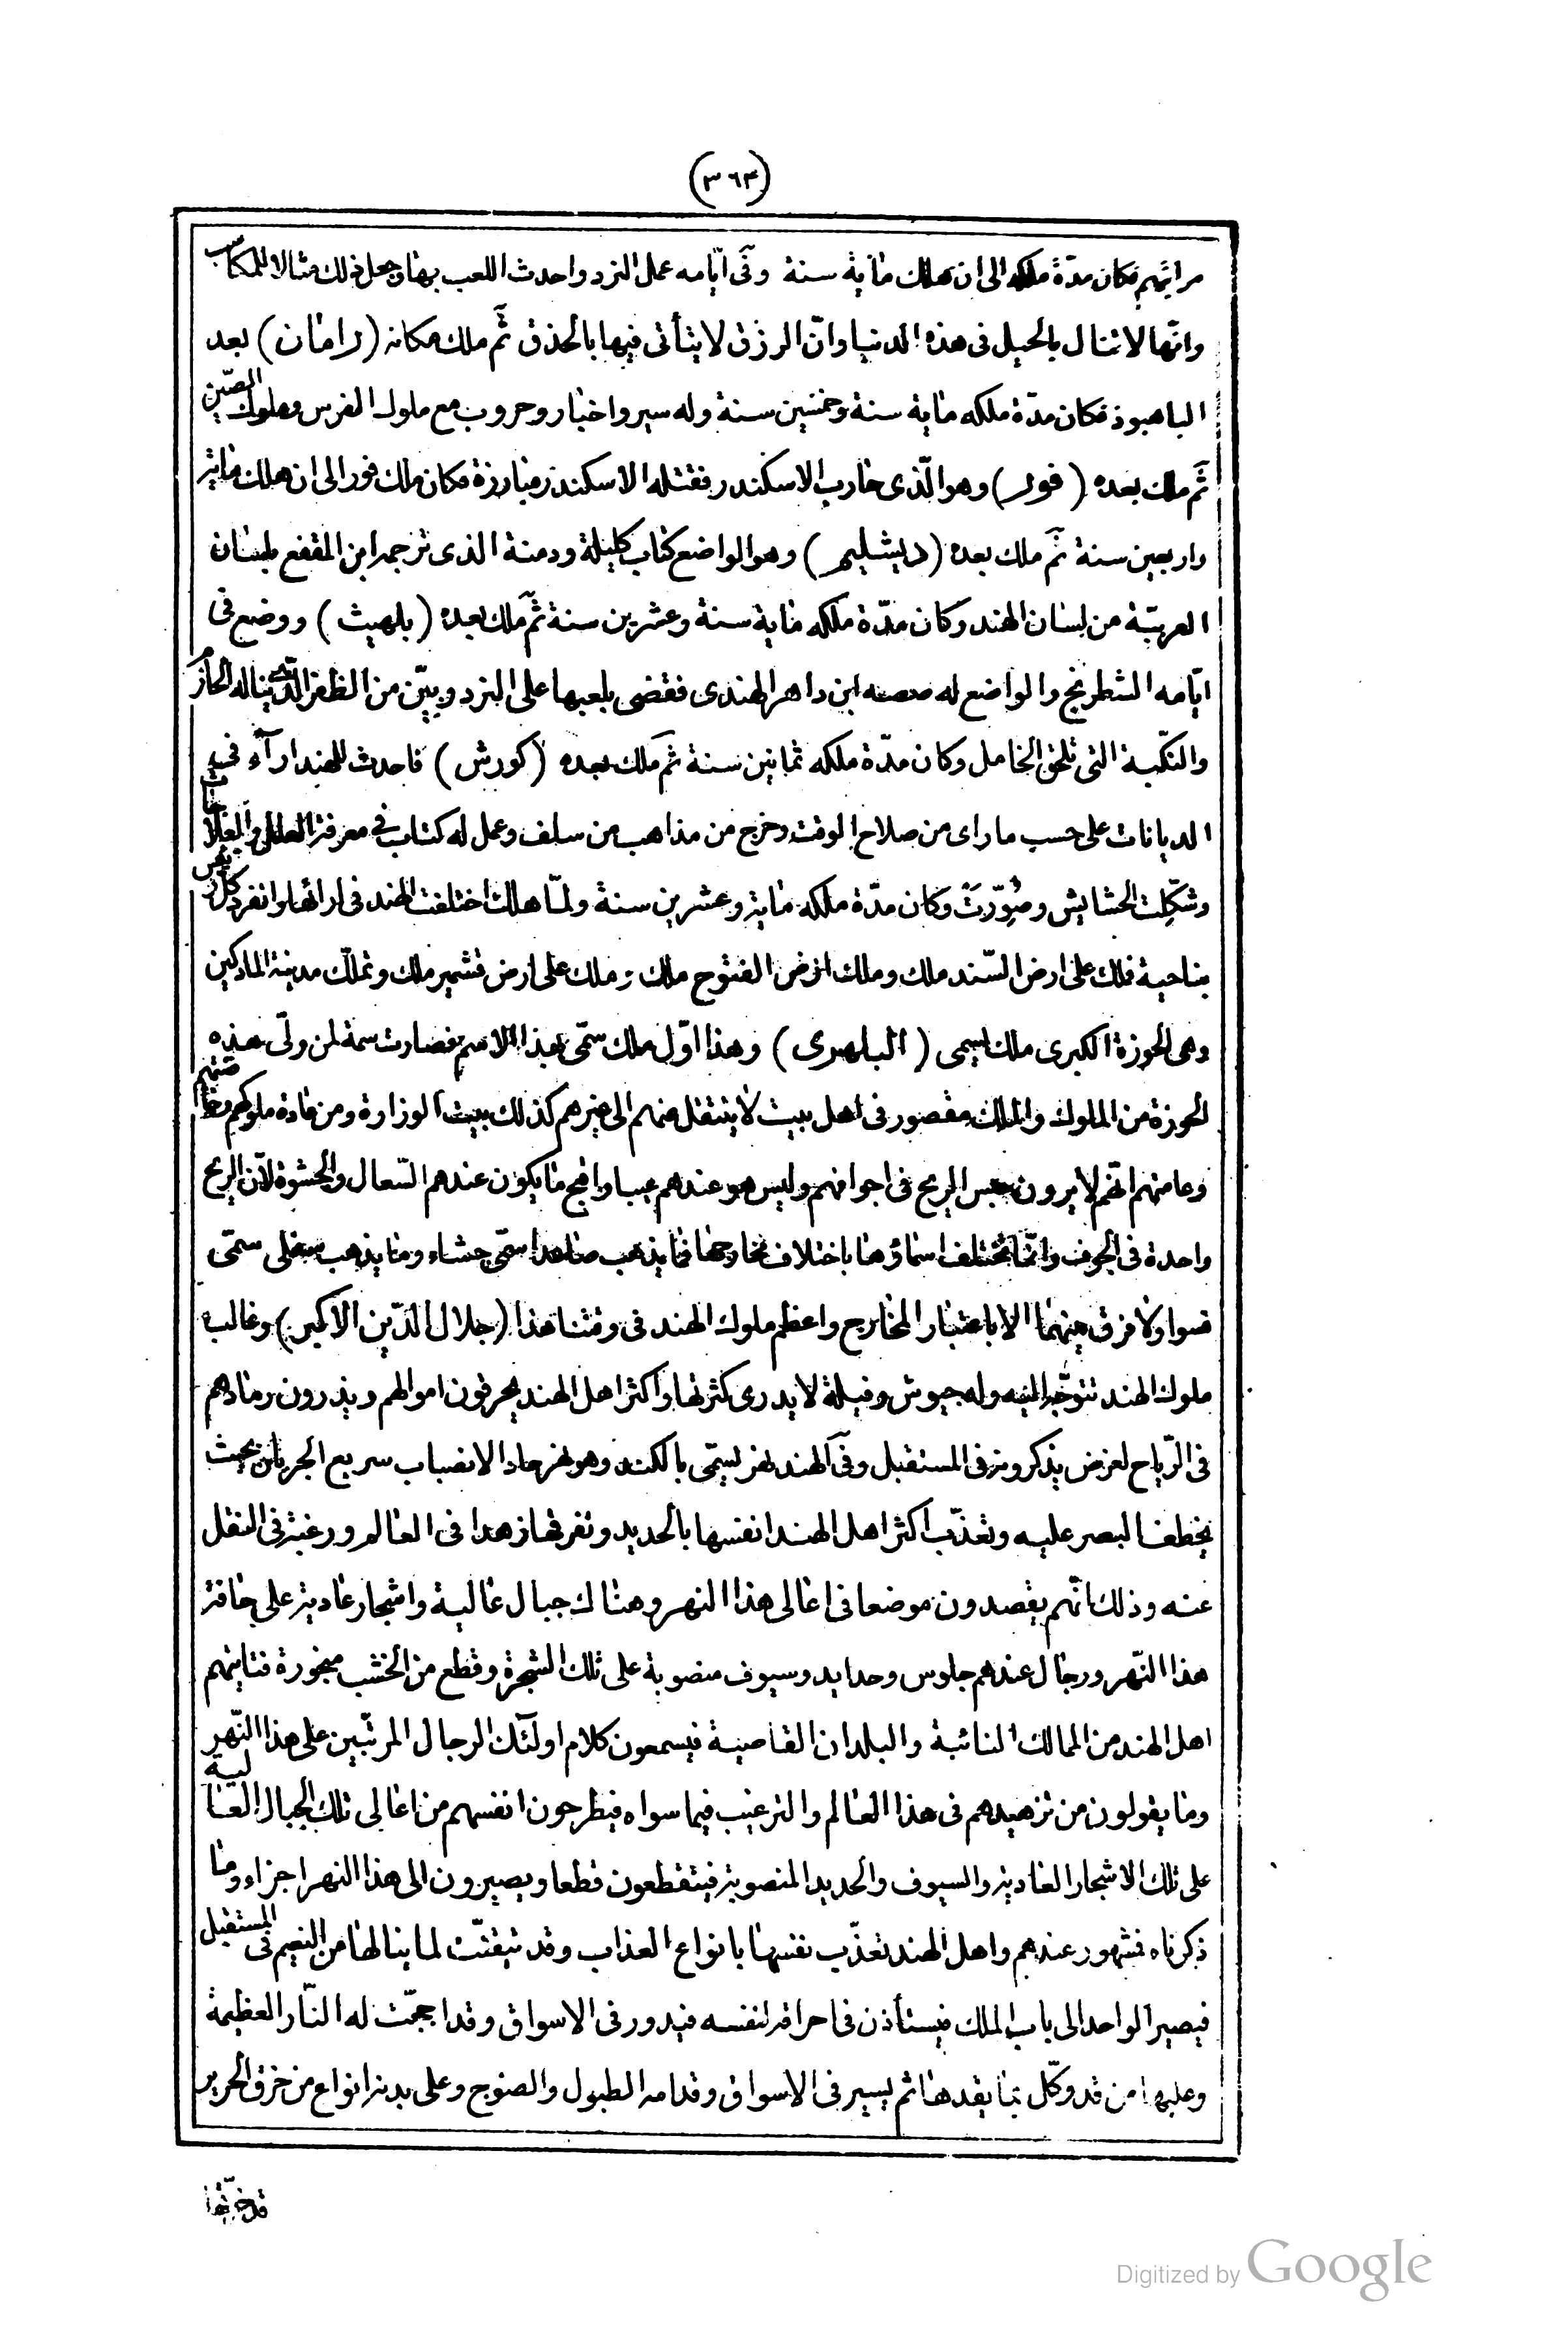 (٣٦٣)
مراتبهم فكان مدّة ملكه الى ان هلك ماية سنة وفى ايّامه عمل النرد واحدث اللعب بها وجعل ذلك مثالا للمكاسب
وانّها لا تنال بالحيل فى هذه الدنيا وانّ الرزق لا يتأتى فيها بالحذق ثمّ ملك مكانه (رامان) بعد
الباهبوذ فكان مدّة ملكه ماية سنة وخمسين سنة وله سير واخبار وحروب مع ملوك الفرس وملوك الصّين
ثمّ ملك بعده (فور) وهو الّذى حارب الاسكندر فقتله الاسكندر مبارزة فكان ملك فور الى ان هلك ماية
واربعين سنة ثمّ ملك بعده (دبشليم) وهو الواضع كتاب كليلة ودمنة الذى ترجمه ابن المقفع بلسان
العربيّة من لسان الهند وكان مدّة ملكه ماية سنة وعشرين سنة ثمّ ملك بعده (بلهيث) ووضع فى
ايّامه الشطرنج والواضع له صصه ابن داهر الهندى فقضى بلعبها على النرد وبيّن من الظفر الّذى يناله الحازم
والنكبة التى تلحق الخامل وكان مدّة ملكه ثمانين سنة ثمّ ملك بعده (كورش) فاحدث للهند ارآء فى
الديانات على حسب ما راى من صلاح الوقت وخرج من مذاهب من سلف وعمل له كتاب فى معرفة العلل والعلاجات
وشكّلت الحشايش وصُوِّرَتْ وكان مدّة ملكه ماية وعشرين سنة ولمّا هلك اختلفت الهند فى ارائها وانفرد كل رئيس
بناحية فملك على ارض السّند ملك وملك ارض القنوج ملك وملك على ارض قشمير ملك وتملّك مدينة المادكين
وهى الحوزة الكبرى ملك يسمى (البلهرى) وهذا اوّل ملك سمّى بهذا الاسم فصارت سمة لمن ولّى هذه
الحوزة من الملوك والملك مقصور فى اهل بيت لا ينتقل منهم الى غيرهم كذلك بيت الوزارة ومن عادة ملوكهم وخاصّتهم
وعامتهم انّهم لا يرون حبس الريح فى اجوافهم وليس هو عندهم عيبا واقبح ما يكون عندهم السّعال والجشوة لانّ الريح
واحدة فى الجوف وانّما تختلف اسماؤها باختلاف مخارجها فما يذهب صاعدا سمّى جشاء وما يذهب سفلى سمّى
فسوا ولا فرق بينهما الا باعتبار المخارج واعظم ملوك الهند فى وقتنا هذا (جلال الدّين الاكبر) وغالب
ملوك الهند تتوجّه اليه وله جيوش وفيلة لا يدرى كثرتها واكثر اهل الهند يحرقون اموالهم ويذرون رمادهم
فى الرّياح لغرض يذكرونه فى المستقبل وفى الهند نهر يسمّى بالكنك وهو نهر حاد الانصباب سريع الجريان بحيث
يخطف البصر عليه وتعذّب اكثر اهل الهند انفسها بالحديد وتغرقها زهدا فى العالم ورغبة فى النقل
عنه وذلك انّهم يقصدون موضعا فى اعالى هذا النهر وهناك جبال عالية واشجار عادية على حافة
هذا النّهر ورجال عندهم جلوس وحدايد وسيوف منصوبة على تلك الشجرة وقطع من الخشب منجورة فتاتيهم
اهل الهند من الممالك النائية والبلدان القاصية فيسمعون كلام اولئك الرجال المرتّبين على هذا النّهر
وما يقولون من تزهيدهم فى هذا العالم والترغيب فيما سواه فيطرحون انفسهم من اعالى تلك الجبال العالية
على تلك الاشجار العادية والسيوف والحديد المنصوبة فيتقطعون قطعا ويصيرون الى هذا النهر اجزاء وما
ذكرناه فشهور عندهم واهل الهند تعذّب نفسها بانواع العذاب وقد تيقنت لما ينالها من النعيم فى المستقبل
فيصير الواحد الى باب الملك فيستأذن فى احراقه لنفسه فيدور فى الاسواق وقد اججّت له النّار العظيمة
وعليها من قد وكّل بما يقدها ثم يسير فى الاسواق وقدامه الطبول والصنوج وعلى بدنه انواع من خرق الحرير
Digitized by Google